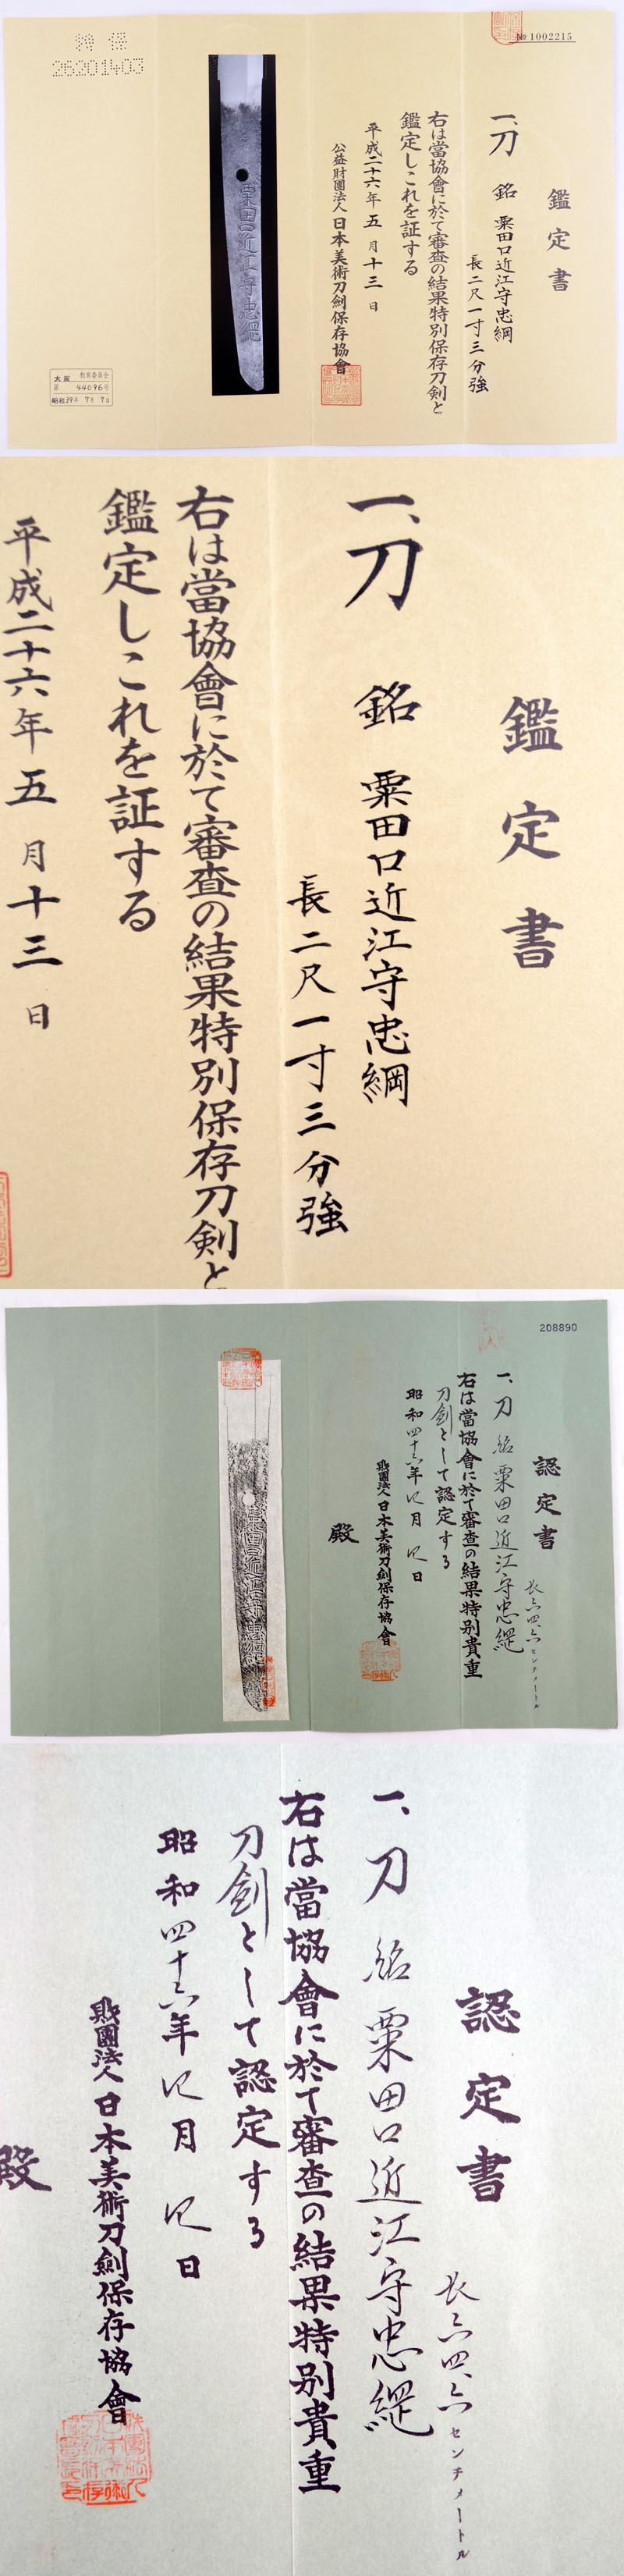 № 1002215
鑑定書
一、刀 銘 粟田口近江守忠綱
長二尺一寸三分強
右は當協會に於て審査の結果特別保存刀剣と
鑑定しこれを証する
平成二十六年五月十三日
公益財團法人日本美術刀劍保存協會
粟田口近江守忠綱
特保
26201403
大阪 教育委員会
第 44096号
昭和39年 7月 7日
鑑定書
一、刀 銘 粟田口近江守忠綱
長二尺一寸三分強
右は當協會に於て審査の結果特別保存刀剣と
鑑定しこれを証する
平成二十六年五月十三日
208890
認定書
長六四、六センチメートル
一、刀 銘 粟田口近江守忠綱
右は當協會に於て審査の結果特別貴重
刀劍として認定する
昭和四十六年 月 日
財團法人日本美術刀劍保存協會
殿
粟田口近江守忠綱
認定書
長六四、六センチメートル
一、刀 銘 粟田口近江守忠綱
右は當協會に於て審査の結果特別貴重
刀劍として認定する
昭和四十六年 月 日
財團法人日本美術刀劍保存協會
殿